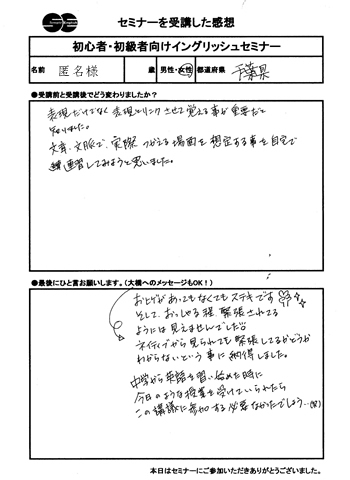 セミナーを受講した感想
初心者・初級者向けイングリッシュセミナー
名前 匿名様 歳 男性・女性 都道府県 千葉県
●受講前と受講後でどう変わりましたか？
表現だけでなく表現とリンクさせて覚える事が重要だと
知りました。
文章、文脈で、実際つかえる場面を想定する事を自宅で
練習してみようと思いました。
●最後にひと言お願いします。（大橋へのメッセージもOK！）
おヒゲがあってもなくてもステキです
そして、おっしゃる程 緊張されてる
ようには見えませんでした
ネイティブから見られても緊張してるかどうか
わからないという事に納得しました。
中学から英語を習い始めた時に
今日のような授業を受けていられたら
この講議に参加する必要なかったでしょう…(笑)
本日はセミナーにご参加いただきありがとうございました。